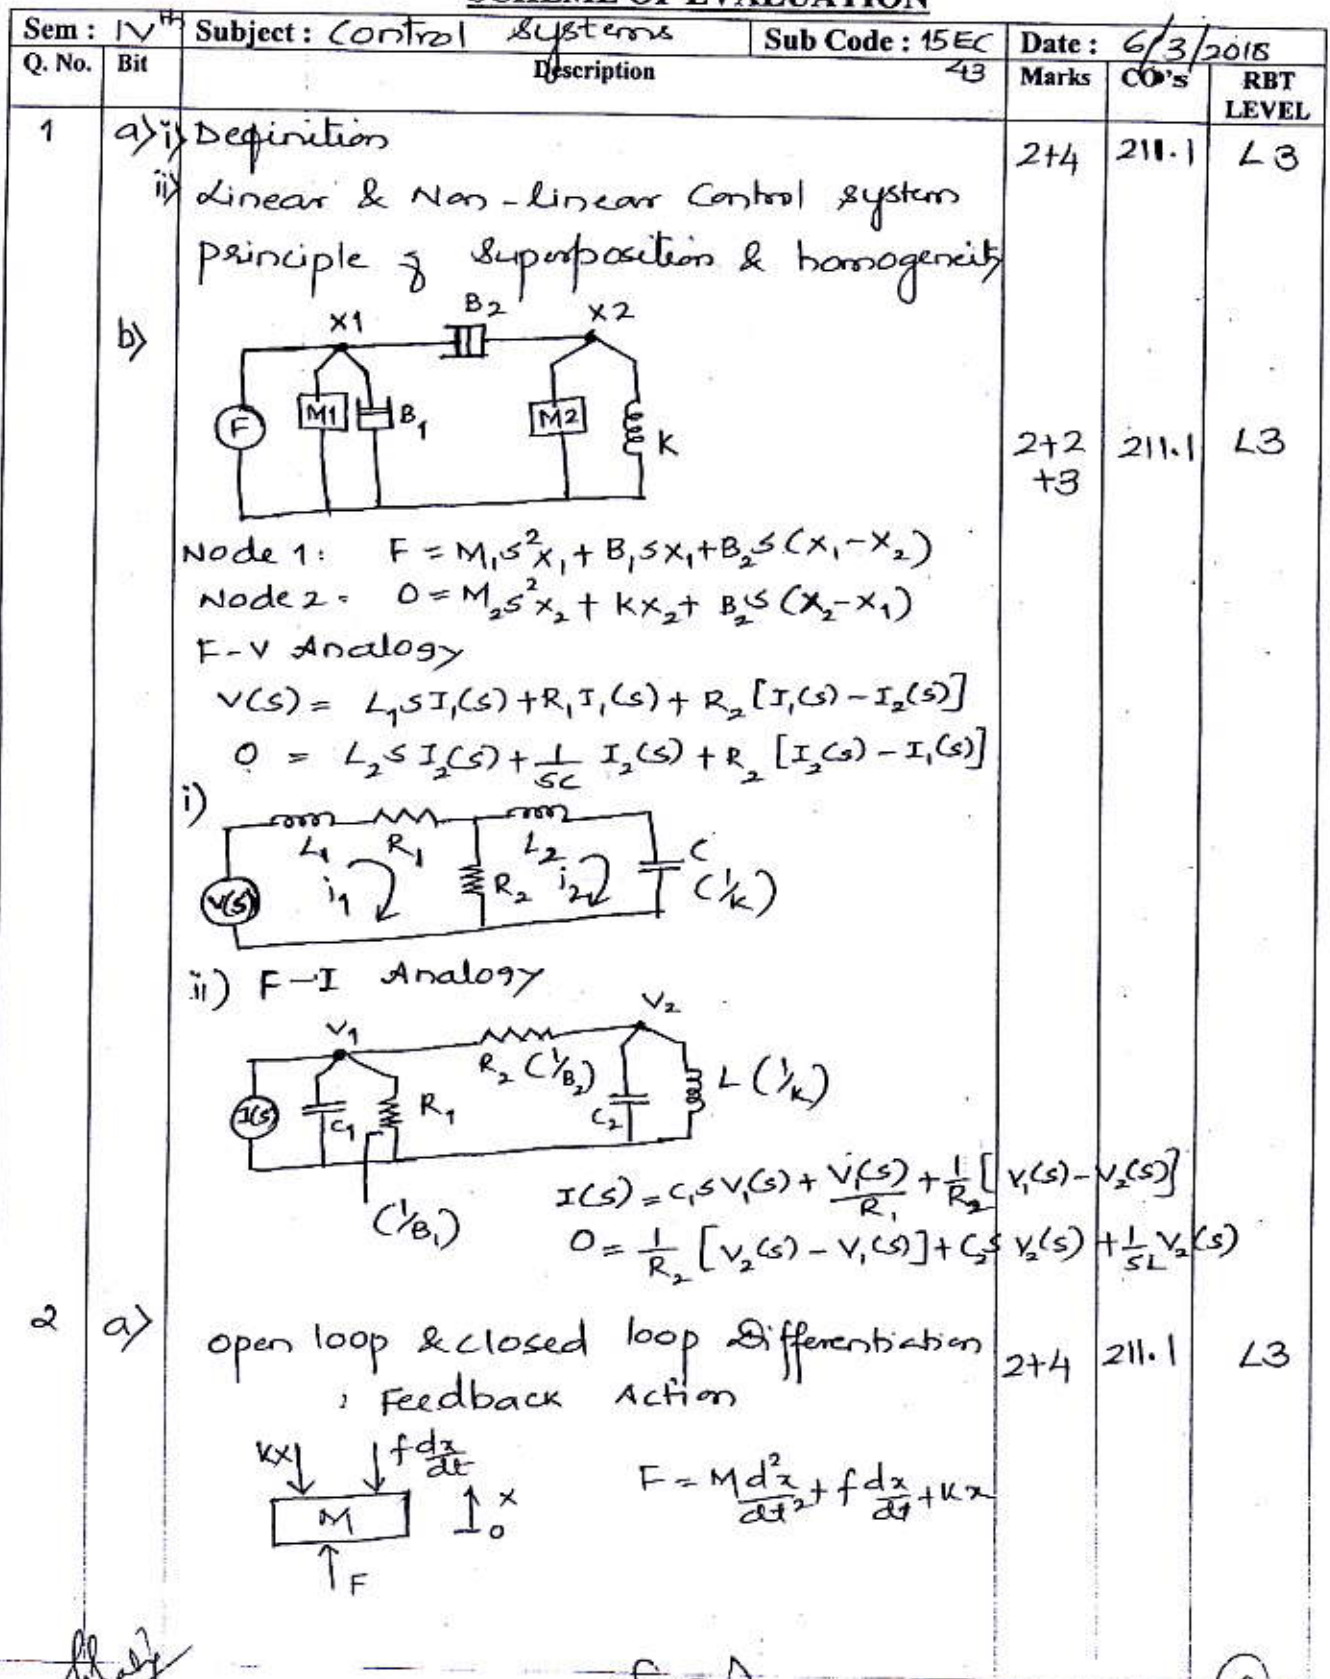 SCHEME OF EVALUATION
Sem : IVth Subject : Control Systems Sub Code : 15EC43 Date : 6/3/2018
Q. No. Bit Description Marks CO's RBT LEVEL
1 a) i) Definition 2+4 211.1 L3
ii) Linear & Non-linear Control system
principle of Superposition & homogeneity
b) X1 B2 X2
F M1 B1 M2 K 2+2+3 211.1 L3
Node 1: F = M₁s²x₁ + B₁sx₁ + B₂s(x₁-x₂)
Node 2: 0 = M₂s²x₂ + Kx₂ + B₂s(x₂-x₁)
F-V Analogy
V(s) = L₁sI₁(s) + R₁I₁(s) + R₂[I₁(s) - I₂(s)]
0 = L₂sI₂(s) + 1/sc I₂(s) + R₂[I₂(s) - I₁(s)]
i)
L1 R1 L2 C
V(s) i1 R2 i2 (1/K)
ii) F-I Analogy
V1 V2
R2 (1/B2)
I(s) C1 R1 C2 L (1/K)
(1/B1)
I(s) = C₁sV₁(s) + V₁(s)/R₁ + 1/R₂[V₁(s) - V₂(s)]
0 = 1/R₂[V₂(s) - V₁(s)] + C₂s V₂(s) + 1/sL V₂(s)
2 a) open loop & closed loop Differentiation 2+4 211.1 L3
: Feedback Action
Kx f dx/dt
M x 0
F
F = M d²x/dt² + f dx/dt + Kx